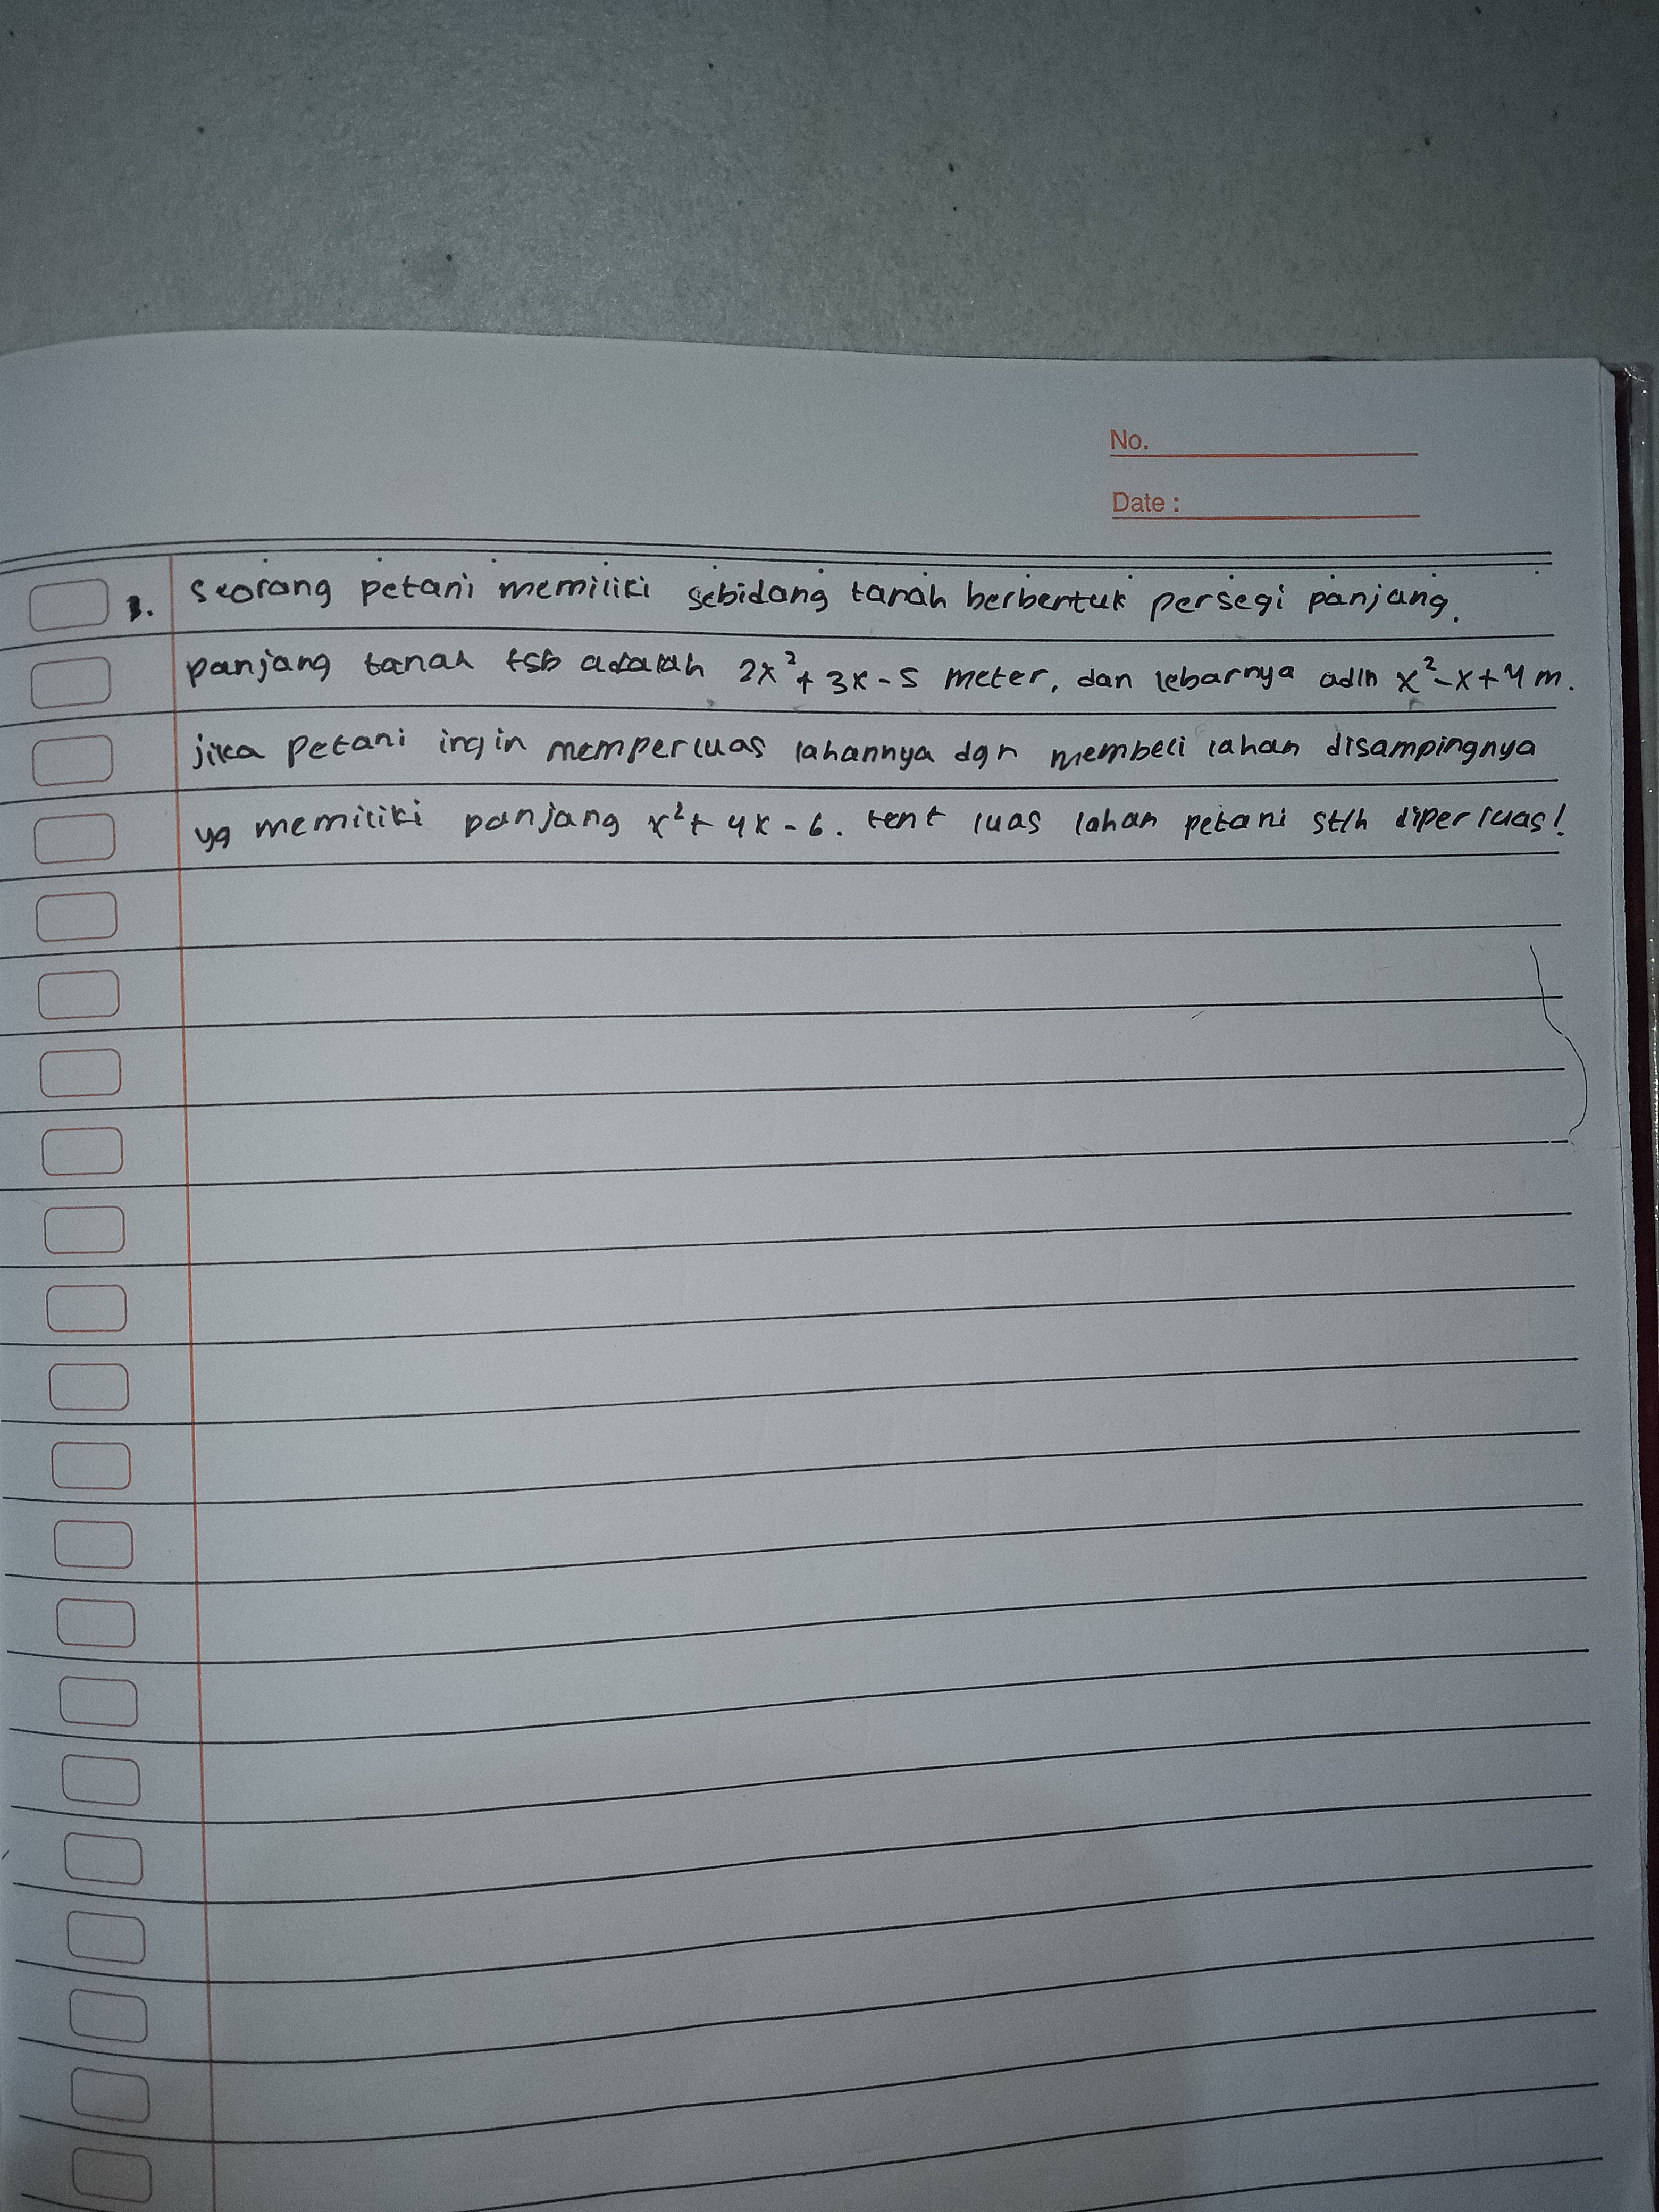 No.
Date :
1. Seorang petani memiliki sebidang tanah berbentuk persegi panjang.
panjang tanah tsb adalah 2x²+ 3x - 5 meter, dan lebarnya adlh x²-x+4 m.
jika petani ingin memperluas lahannya dgn membeli lahan disampingnya
yg memiliki panjang x²+ 4x - 6. tent luas lahan petani stlh diperluas!